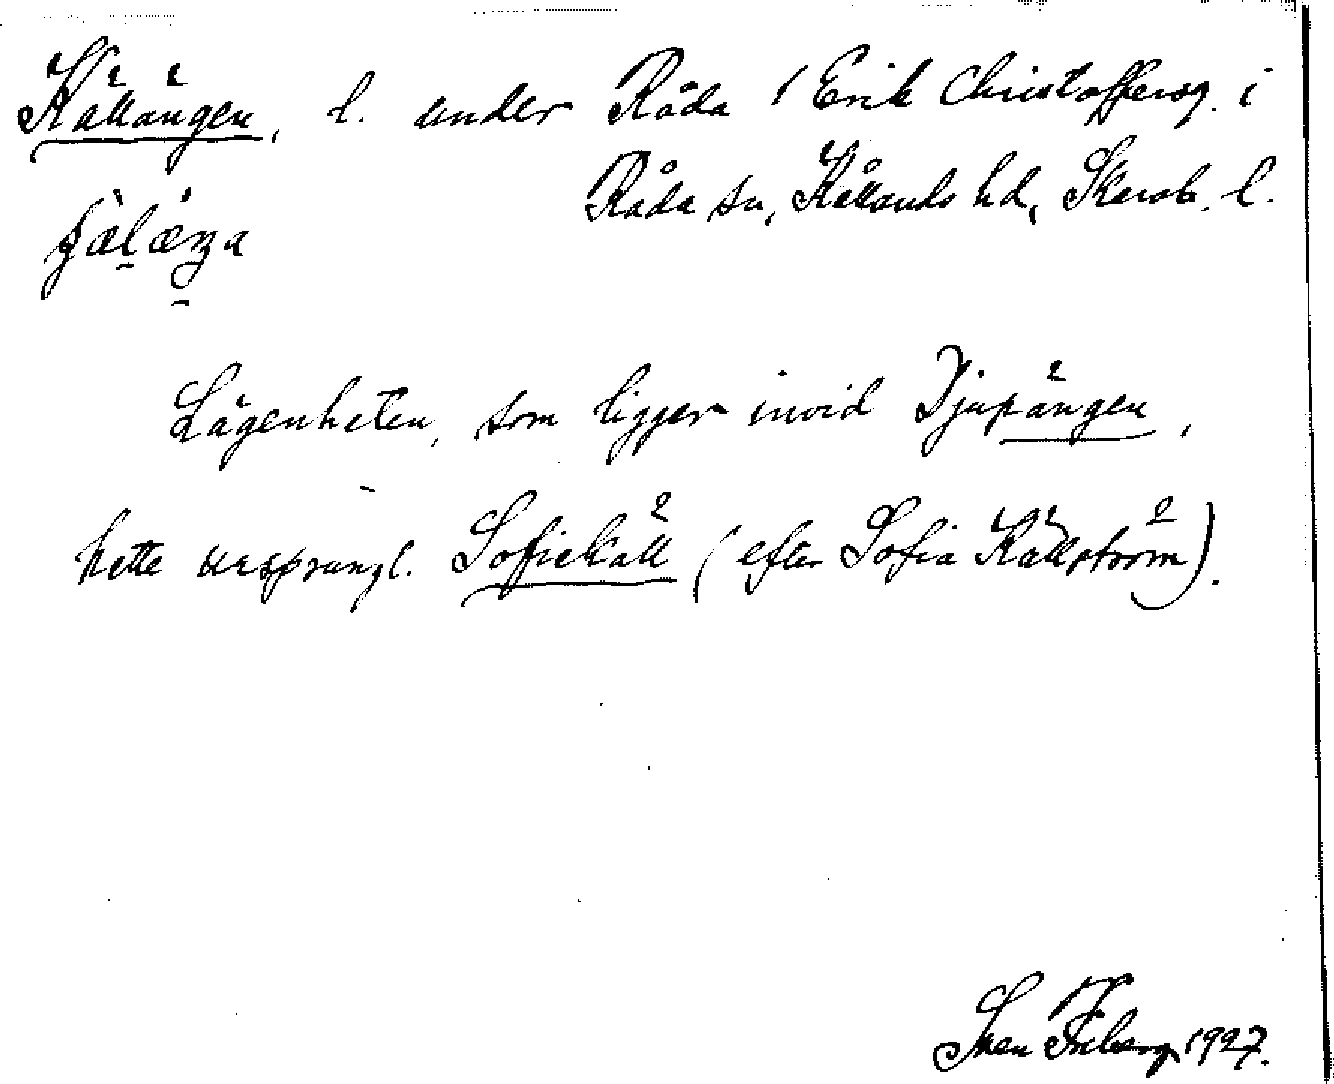 Källängen, l. under Råda / Erik Christoffersg. i
Råda sn, Kållands hd, Skarab. l.
Lägenheten, som ligger invid Djupängen,
hette ursprungl. Sofiekäll (efter Sofia Källström).
Sven Friberg 1927.